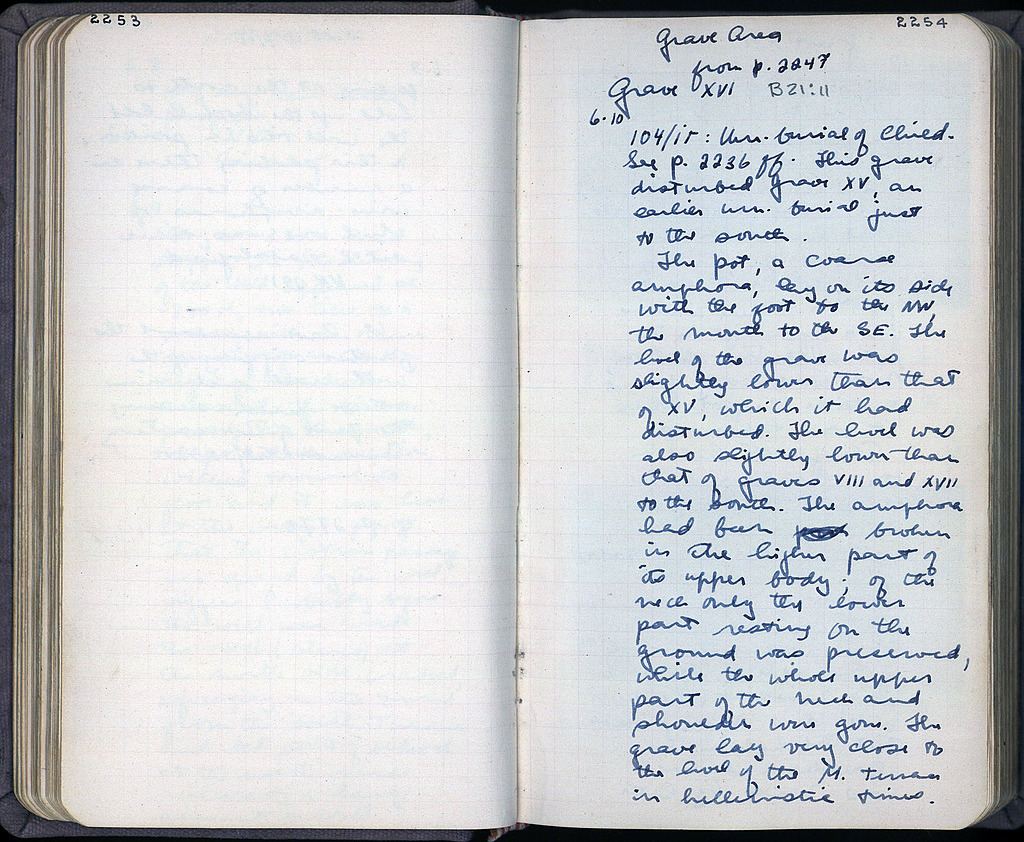 2253
2254
Grave Area
from p. 2247
Grave XVI B21:11
6-10
104/ΙΓ: Urn-burial of Child.
See p. 2236 ff. This grave
disturbed grave XV, an
earlier urn-burial just
to the south.
The pot, a coarse
amphora, lay on its side
with the foot to the NW,
the mouth to the SE. The
level of the grave was
slightly lower than that
of XV, which it had
disturbed. The level was
also slightly lower than
that of graves VIII and XVII
to the south. The amphora
had been broken
in the higher part of
its upper body; of the
neck only the lower
part resting on the
ground was preserved,
while the whole upper
part of the neck and
shoulder was gone. The
grave lay very close to
the level of the M. Terrace
in hellenistic times.